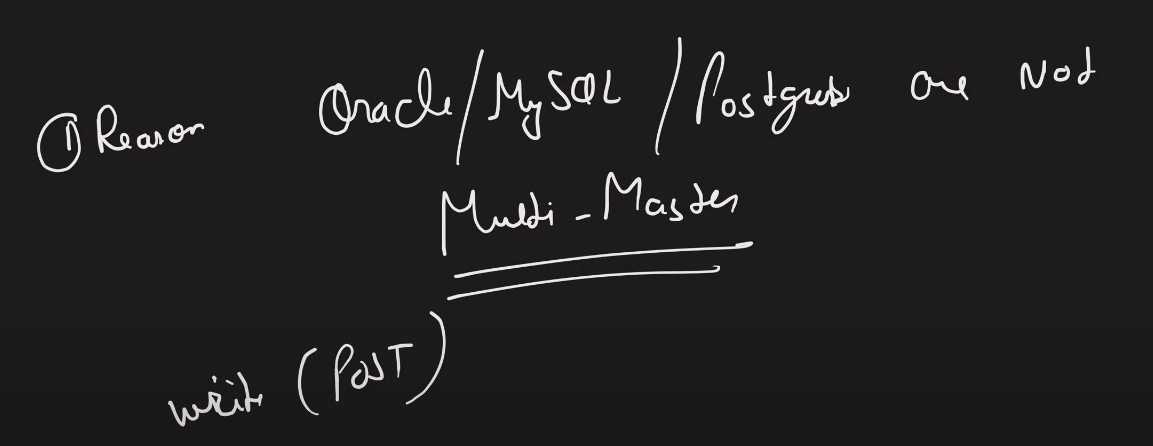 ① Reason Oracle/MySQL/Postgres are Not
Multi-Master
write (POST)